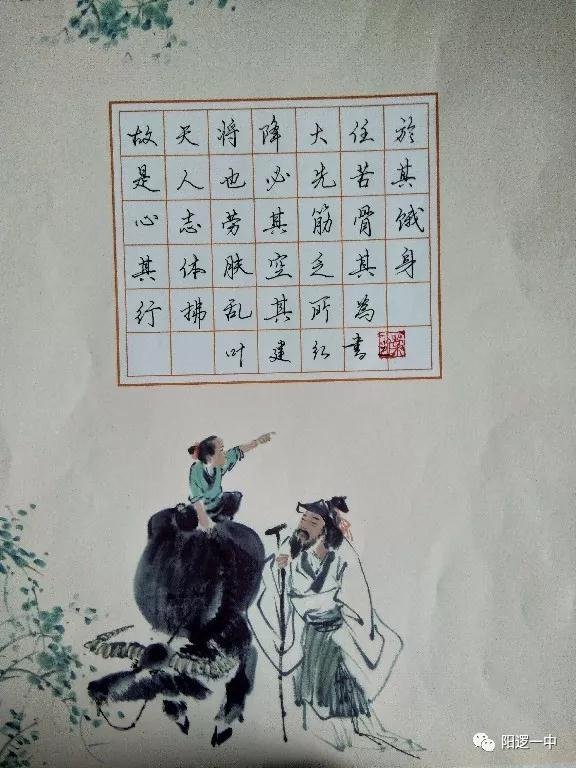 故天将降大任於
是人也必先苦其
心志劳其筋骨饿
其体肤空乏其身
行拂乱其所为
叶建红书
阳逻一中